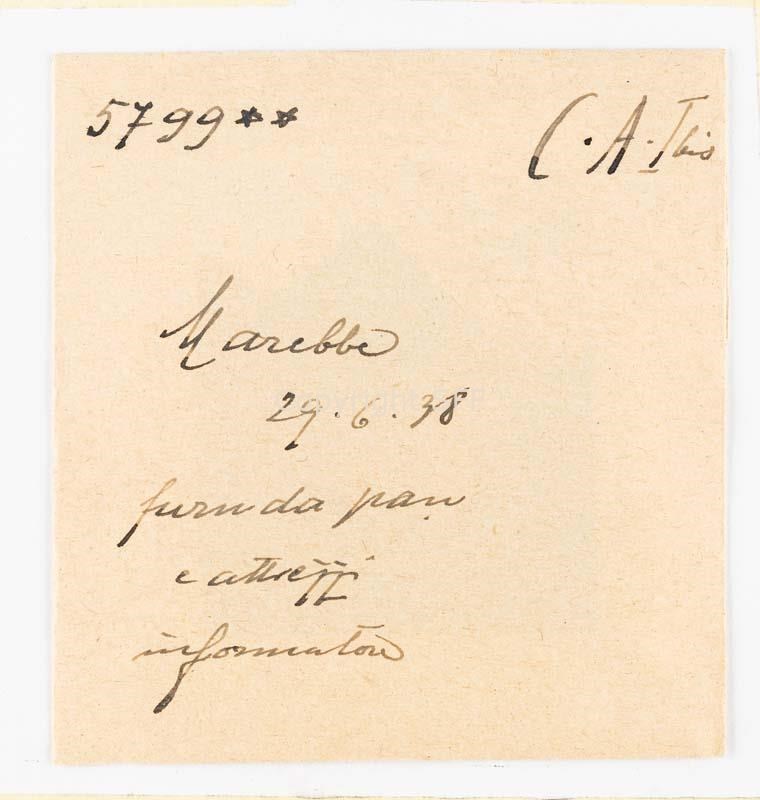 5799** C.A.Ibis
Marebbe
29.6.38
furn da pan
e attrezzi
informatore